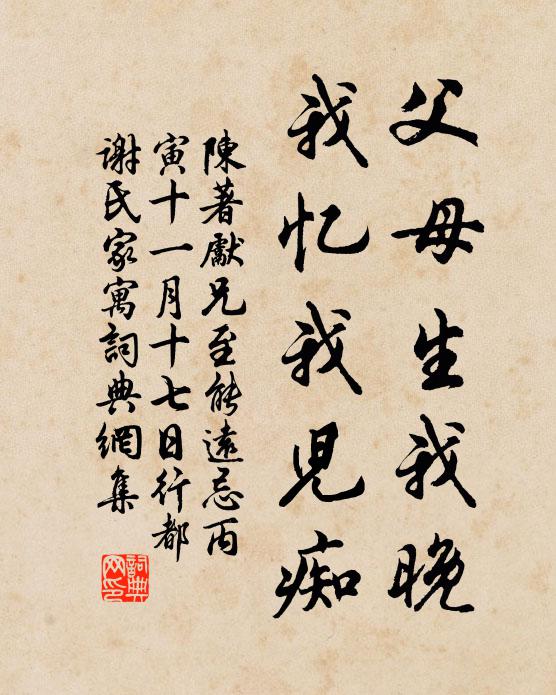 父母生我晚
我忆我児痴
陳著獻兄至能遠忌丙
寅十一月十七日行都
謝氏家寓詞典網集
詞典网印